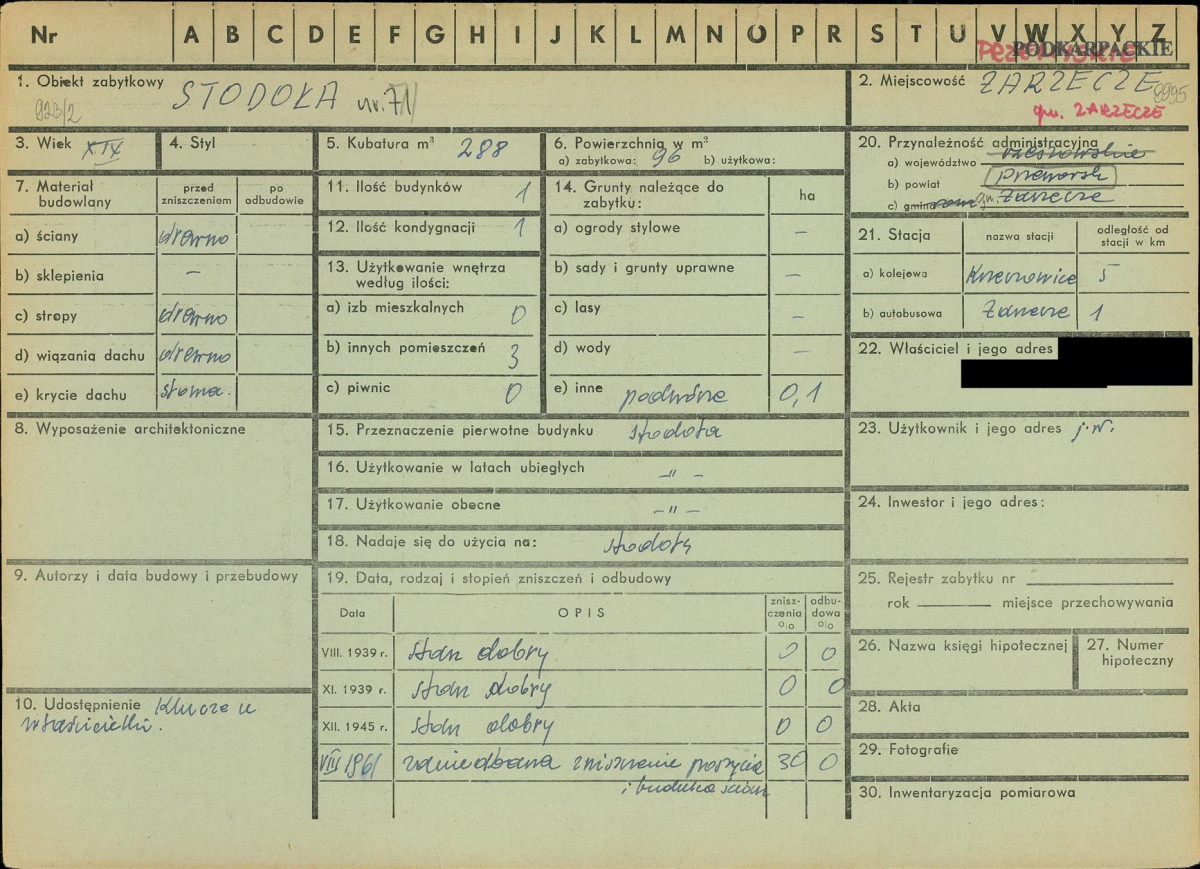 Nr A B C D E F G H I J K L M N O P R S T U V W X Y Z
PODKARPACKIE
1. Obiekt zabytkowy STODOŁA nr. 71
923/2
2. Miejscowość ZARZECZE
8995
gm. ZARZECZE
3. Wiek XIX
4. Styl
5. Kubatura m³ 288
6. Powierzchnia w m²
a) zabytkowa: 96 b) użytkowa:
20. Przynależność administracyjna
a) województwo rzeszowskie
b) powiat Przeworsk
c) gmina gm. Zarzecze
7. Materiał budowlany
przed zniszczeniem
po odbudowie
a) ściany drewno
b) sklepienia –
c) stropy drewno
d) wiązania dachu drewno
e) krycie dachu słoma.
11. Ilość budynków 1
12. Ilość kondygnacji 1
13. Użytkowanie wnętrza
według ilości:
a) izb mieszkalnych 0
b) innych pomieszczeń 3
c) piwnic 0
14. Grunty należące do
zabytku:
ha
a) ogrody stylowe –
b) sady i grunty uprawne –
c) lasy –
d) wody –
e) inne podwórze 0,1
21. Stacja
nazwa stacji
odległość od
stacji w km
a) kolejowa Krzeczowice 5
b) autobusowa Zarzecze 1
22. Właściciel i jego adres
8. Wyposażenie architektoniczne
15. Przeznaczenie pierwotne budynku stodoła
16. Użytkowanie w latach ubiegłych –"–
17. Użytkowanie obecne –"–
18. Nadaje się do użycia na: stodołę
23. Użytkownik i jego adres j.w.
24. Inwestor i jego adres:
9. Autorzy i data budowy i przebudowy
19. Data, rodzaj i stopień zniszczeń i odbudowy
Data
OPIS
znisz-
czenia
o|o
odbu-
dowa
o|o
VIII. 1939 r. stan dobry 0 0
XI. 1939 r. stan dobry 0 0
XII. 1945 r. stan dobry 0 0
VIII 1961 zaniedbana zniszczenie poszycia 30 0
i ścian
25. Rejestr zabytku nr
rok miejsce przechowywania
26. Nazwa księgi hipotecznej
27. Numer
hipoteczny
10. Udostępnienie Klucze u
właścicielki.
28. Akta
29. Fotografie
30. Inwentaryzacja pomiarowa